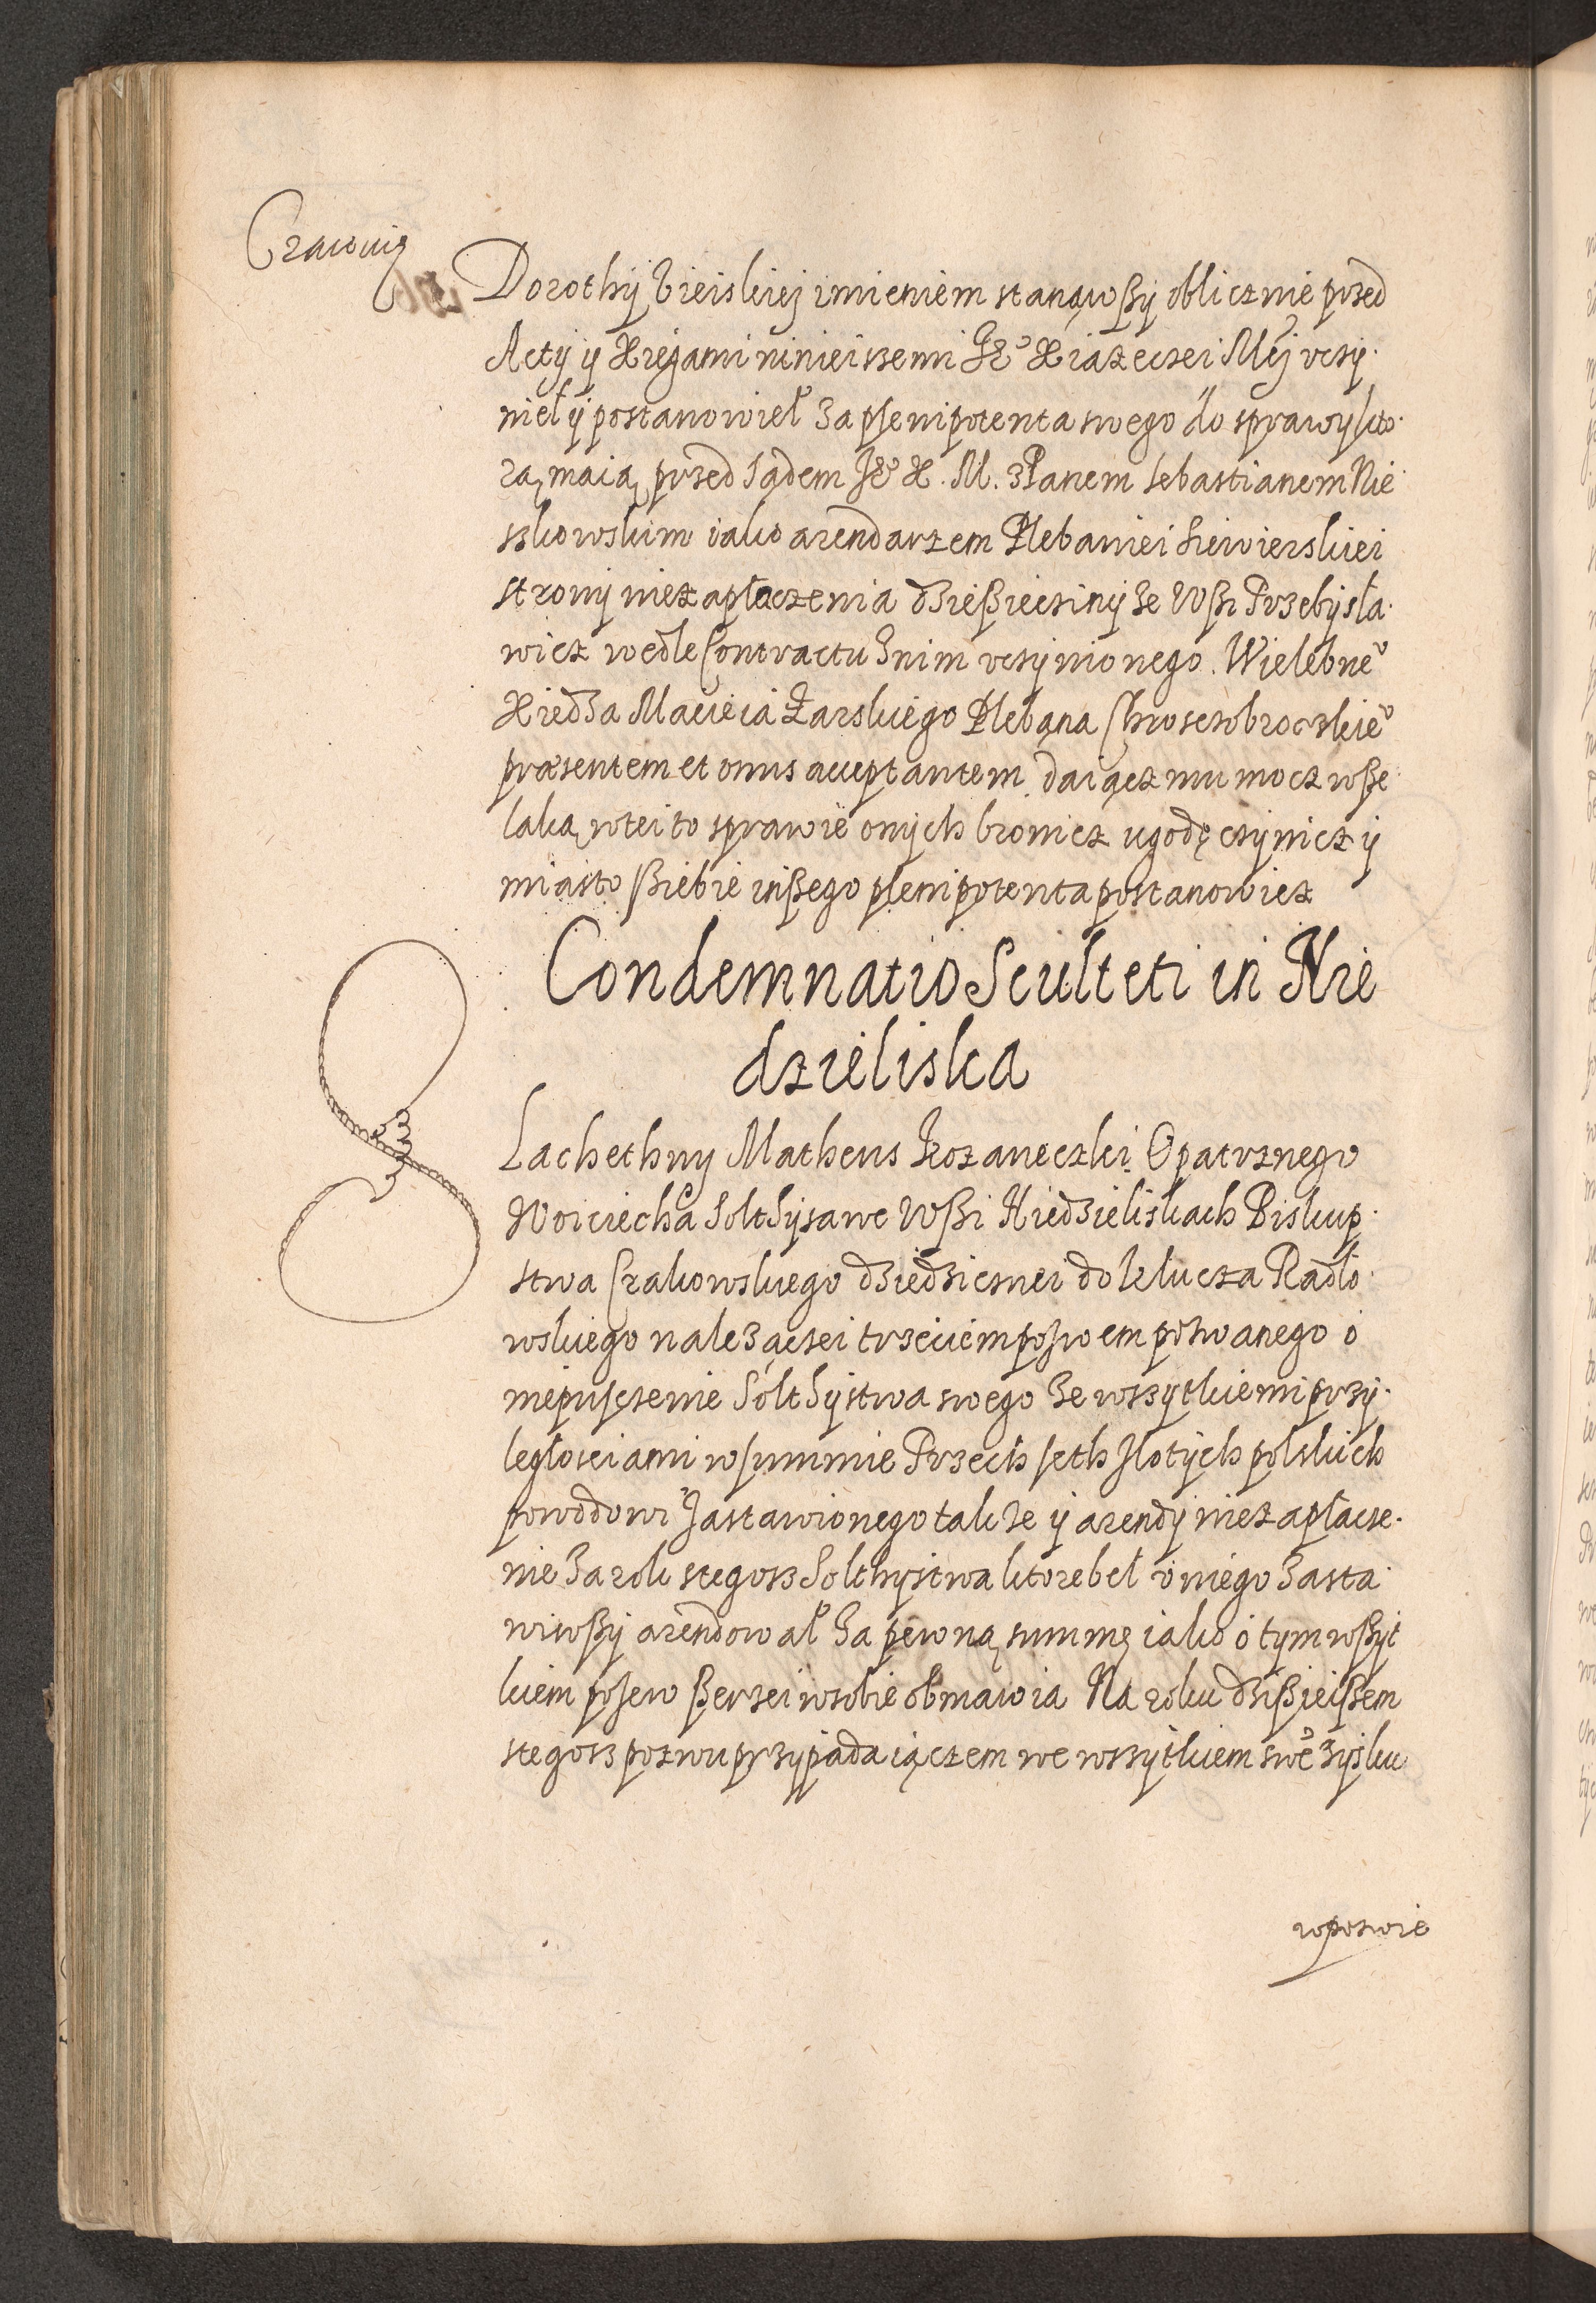 Dorothÿ Bieiskiej imieniem stanąwßÿ oblicznie przed
Actÿ ÿ Xięgami ninieiszemi Jeº Xiażeczei Mcj vczÿ
niel ÿ postanowieł za plenipotenta swego do sprawÿ kto
rą maią przed Sądem Jeº X. M. z Panem Sebastianem Nie
szkowskim iako arendarzem Plebaniei Siewierskiei
stronÿ niezapłaczenia dzießięczinÿ ze Wßi Przebÿsła
wicz wedle Contractu z nim vczÿnionego. Wielebneº
Xiedza Macieia Żarskiego Plebana Chrosczobroczkieº
præsentem et onus acceptantem, daiącz mu mocz wße
laką w tei to sprawie onÿch bronicz ugodę czÿnicz ÿ
miasto ßiebie inßego plenipotenta postanowicz
Condemnatio Sculteti in Nie
dzieliska
Slachethnÿ Matheus Kozaneczki Opatrznego
Woiciecha Solthÿsa we Wßi Niedzieliskach Biskup
stwa Crakowskiego dziedzicznei do klucza Radło
wskiego nalezączei trzeciem pozwem pozwanego o
niepusczenie Solthÿstwa swego ze wszÿtkiemi przÿ
ległosciami w summie Trzech seth złotÿch polskich
powodowi zastawionego takze ÿ arendÿ niezapłacze
nie za rok stegosz Solthÿstwa ktore bel v niego zasta
wiwßÿ arendował za pewną summę iako o tym wßÿt
kiem pozew ßerzei w sobie obmawia Na roku dzißieißem
stegosz pozwu przÿpadaiączem we wszÿtkiem sweº zÿsku
w pozwie